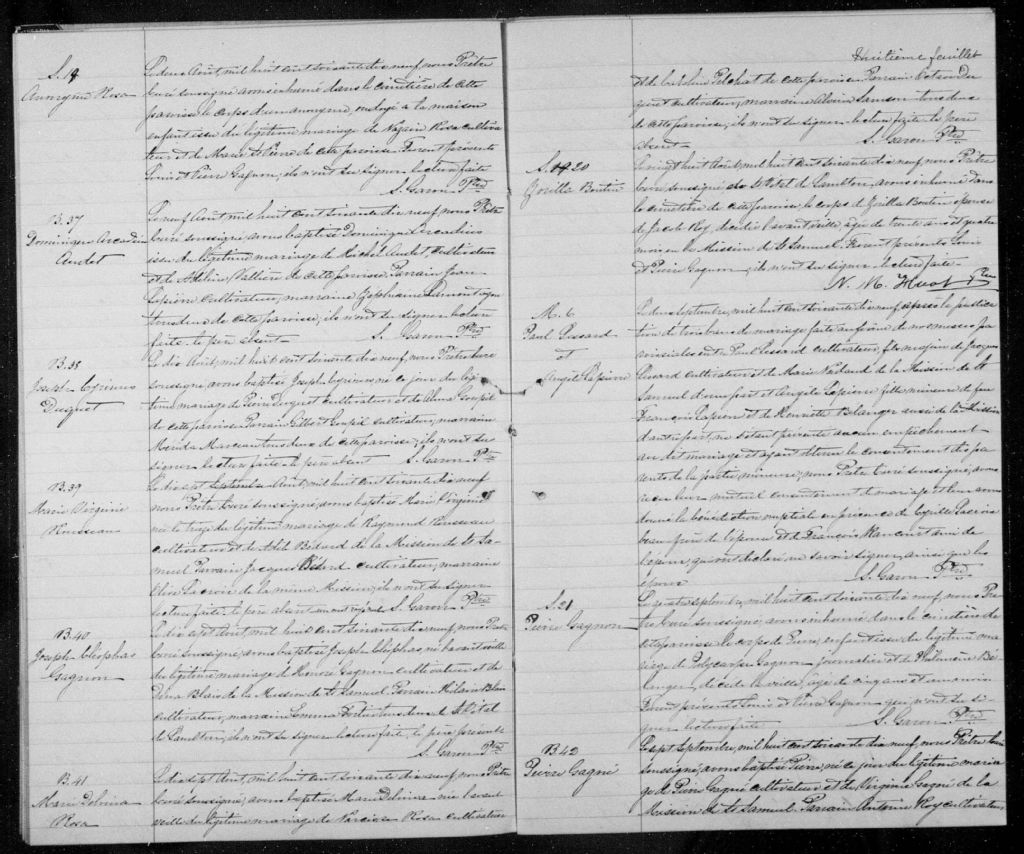 S. 19
Anonyme Rosa
Le deux Août, mil huit cent soixante dix neuf, nous Prêtre
Curé soussigné avons inhumé dans le cimetière de cette
paroisse le corps d'un anonyme, ondoyé à la maison
enfant issu du légitime mariage de Nazaire Rosa cultiva
teur et de Marie St Pierre de cette paroisse. Furent présents
Louis et Pierre Gagnon, ils n'ont su signer lecture faite
S. Garon Ptre
B. 37
Dominique Arcadius
Audet
Le neuf Août, mil huit cent soixante dix neuf, nous Prêtre
Curé soussigné, avons baptisé Dominique Arcadius
issu du légitime mariage de Michel Audet, cultivateur
et de Adeline Vallière de cette paroisse. Parrain Jean
Lapierre cultivateur, marraine Zéphirine Lamontagne
tous deux de cette paroisse, ils n'ont su signer lecture
faite. le père absent S. Garon Ptre
B. 38
Joseph Cyrinus
Duquet
Le dix Août, mil huit cent soixante dix neuf, nous Prêtre curé
soussigné, avons baptisé Joseph Cyrinus, né ce jour du légi
time mariage de Pierre Duquet cultivateur et de Anna Goupil
de cette paroisse Parrain Gilbert Goupil cultivateur, marraine
Marceau tous deux de cette paroisse, ils n'ont su
signer lecture faite le père absent S. Garon Ptre
B. 39
Marie Virginie
Rousseau
Le dix sept Août, mil huit cent soixante dix neuf
nous Prêtre Curé soussigné, avons baptisé Marie Virginie
née le treize du légitime mariage de Raymond Rousseau
cultivateur et de Adèle Bédard de la Mission de St Sa-
muel Parrain Jacques cultivateur, marraine
Lacroix de la même Mission, ils n'ont su signer
lecture faite. le père absent S. Garon Ptre
B. 40
Joseph Cléophas
Gagnon
Le dix sept Août, mil huit cent soixante dix neuf, nous Prêtre
Curé soussigné, avons baptisé Joseph Cléophas, né l'avant veille
du légitime mariage de Honoré Gagnon cultivateur et de
Blais de la Mission de St Samuel Parrain Hilaire Blais
cultivateur, marraine Emma tous deux de St Vital
de Lambton, ils n'ont su signer lecture faite, le père présent
S. Garon Ptre
B. 41
Marie Delvina
Rosa
Le dix sept Août, mil huit cent soixante dix neuf nous Prêtre
Curé soussigné, avons baptisé Marie Delvina née l'avant
veille du légitime mariage de Narcisse Rosa cultivateur
Huitième feuillet
et de Pelchat de cette paroisse Parrain Octave Du
quet cultivateur, marraine Samson tous deux
de cette paroisse, ils n'ont su signer lecture faite le père
absent S. Garon Ptre
S. 20
Zoïlla Boutin
Le vingt huit Août, mil huit cent soixante dix neuf, nous Prêtre
Curé soussigné de St Vital de Lambton, avons inhumé dans
le cimetière de cette paroisse le corps de Zoïlla Boutin épouse
de Jacob Roy, décédée l'avant veille, âgée de trente ans et quatre
mois en la Mission de St Samuel. Furent présents Louis
et Pierre Gagnon, ils n'ont su signer lecture faite
N. M. Huot Ptre
M. 6
Paul Pessard
et
Angèle Lapierre
Le deux Septembre, mil huit cent soixante dix neuf, après la publica
tion de trois bans de mariage faite au prône de nos messes pa
roissiales entre Paul Pessard cultivateur, fils majeur de Jacques
Pessard cultivateur et de Marie Nadeau de la Mission de St
Samuel d'une part et Angèle Lapierre fille mineure de feu
François Lapierre et de Henriette Bélanger aussi de la Mission
d'autre part, ne s'étant présenté aucun empêchement
au dit mariage et ayant obtenu le consentement des pa
rents de la partie mineure; nous Prêtre Curé soussigné, avons
reçu leur mutuel consentement de mariage et leur avons
donné la bénédiction nuptiale en présence de Lacroix
beau-frère de l'époux et de François Mancourt ami de
l'épouse, qui ont déclaré ne savoir signer, ainsi que les
époux S. Garon Ptre
S. 21
Pierre Gagnon
Le quatre Septembre, mil huit cent soixante dix neuf nous Prê
tre Curé soussigné, avons inhumé dans le cimetière de
cette paroisse le corps de Pierre, enfant issu du légitime ma
riage de Polycarpe Gagnon journalier et de Philomène Bé-
langer, décédé la veille, âgé de cinq ans et un mois
Furent présents Louis et Pierre Gagnon qui n'ont su si
gner lecture faite. S. Garon Ptre
B. 42
Pierre Gagné
Le sept Septembre, mil huit cent soixante dix neuf, nous Prêtre Curé
soussigné, avons baptisé Pierre, né ce jour du légitime maria
ge de Pierre Gagné cultivateur et de Virginie Gagné de la
Mission de St Samuel Parrain Antoine Roy cultivateur,